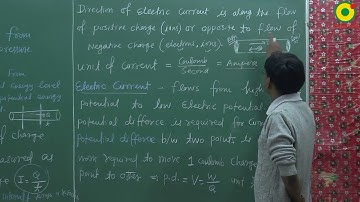 from
pressure.
From
Energy level
potential energy
of charge
measured as
I = Q/t
Direction of Electric Current is along the flow
of positive charge (ions) or opposite to flow of
negative charge (electrons, ions).
unit of Current = Coulomb/Second = Ampere
Electric Current - flows from high
potential to low Electric potential
potential diffrence is required for Curr
potential diffrence b/w two points is
work required to move 1 coulomb Charge
point to other ⇒ p.d. = V = W/Q unit